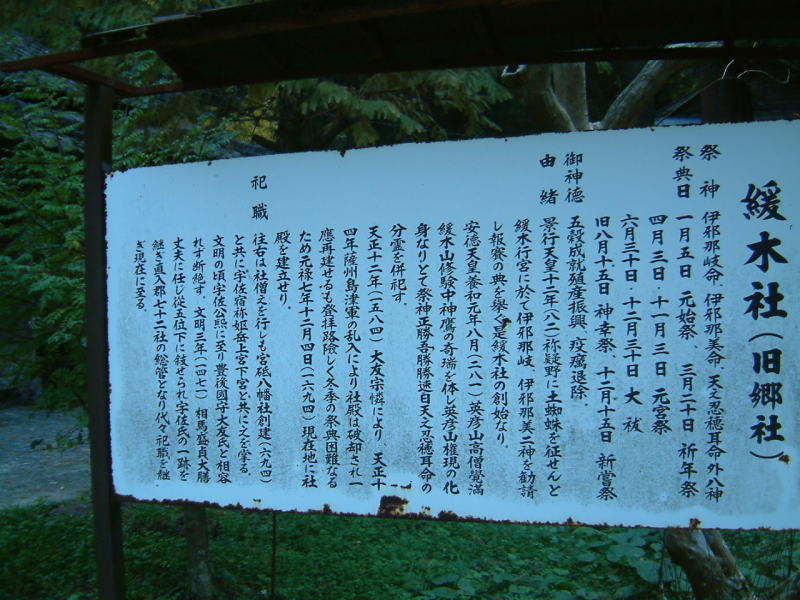 緩木社(旧郷社)
祭神 伊邪那岐命、伊邪那美命、天之忍穂耳命外八神
祭典日 一月五日 元始祭、 三月二十日 祈年祭
四月三日・十一月三日 元宮祭
六月三十日・十二月三十日 大祓
旧八月十五日 神幸祭 十二月十五日 新嘗祭
御神徳 五穀成就殖産振興、疫癘退除、
由緒 景行天皇十二年(八二)祢疑野に土蜘蛛を征せんと
緩水行宮に於て伊邪那岐、伊邪那美二神を勧請
し報賽の典を挙ぐ是緩木社の創始なり、
安徳天皇養和元年八月(一一八一)英彦山高僧覺満
緩木山修験中神鷹の奇瑞を体し英彦山権現の化
身なりとて祭神正勝吾勝勝速日天之忍穂耳命の
分霊を併祀す、
天正十二年(一五八四)大友宗憐により、天正十
四年薩州島津軍の乱入により社殿は破却され一
應再建せるも登拝路險しく冬季の祭典困難なる
ため元禄七年十二月四日(一六九四)現在地に社
殿を建立せり、
祀職 往右は社僧之を行しも宮砥八幡社創建(六九四)
と共に宇佐宿祢姫岳上宮下宮と共に之を掌る、
文明の頃宇佐公照に至り豊後國守大友氏と相容
れず断絶す、文明三年(一四七一)相馬盛貞大膳
丈夫に任じ従五位下に敍せられ宇佐氏の一跡を
継ぎ直入郡七十二社の総管となり代々祀職を継
ぎ現在に至る、